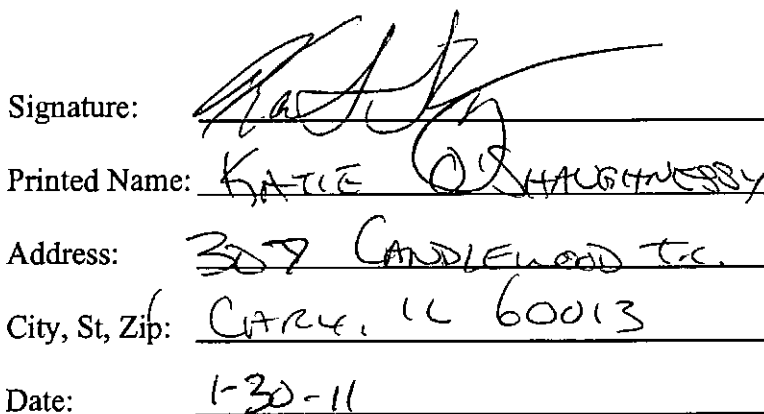 Signature:
Printed Name: KATIE O'SHAUGHNESSY
Address: 307 CANDLEWOOD T.C.
City, St, Zip: CARY, IL 60013
Date: 1-30-11